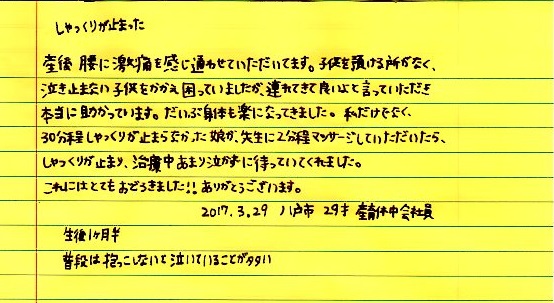 しゃっくりが止まった
産後 腰に激痛を感じ通わせていただいてます。子供を預ける所がなく、
泣き止まない子供をかかえ困っていましたが、連れてきて良いよと言っていただき
本当に助かっています。だいぶ身体も楽になってきました。私だけでなく、
30分程しゃっくりが止まらなかった娘が、先生に2分程マッサージしていただいたら、
しゃっくりが止まり、治療中あまり泣かずに待っていてくれました。
これにはとてもおどろきました!! ありがとうございます。
2017.3.29 八戸市 29才 産育休中会社員
生後1ヶ月半
普段は抱っこしないと泣いていることが多い